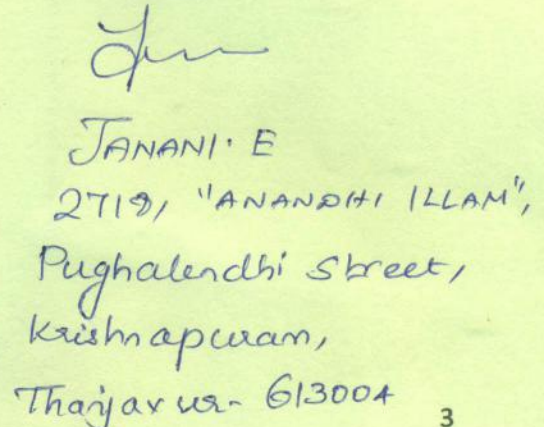 JANANI. E
2719, "ANANDHI ILLAM",
Pughalendhi Street,
Krishnapuram,
Thanjavur- 613004
3